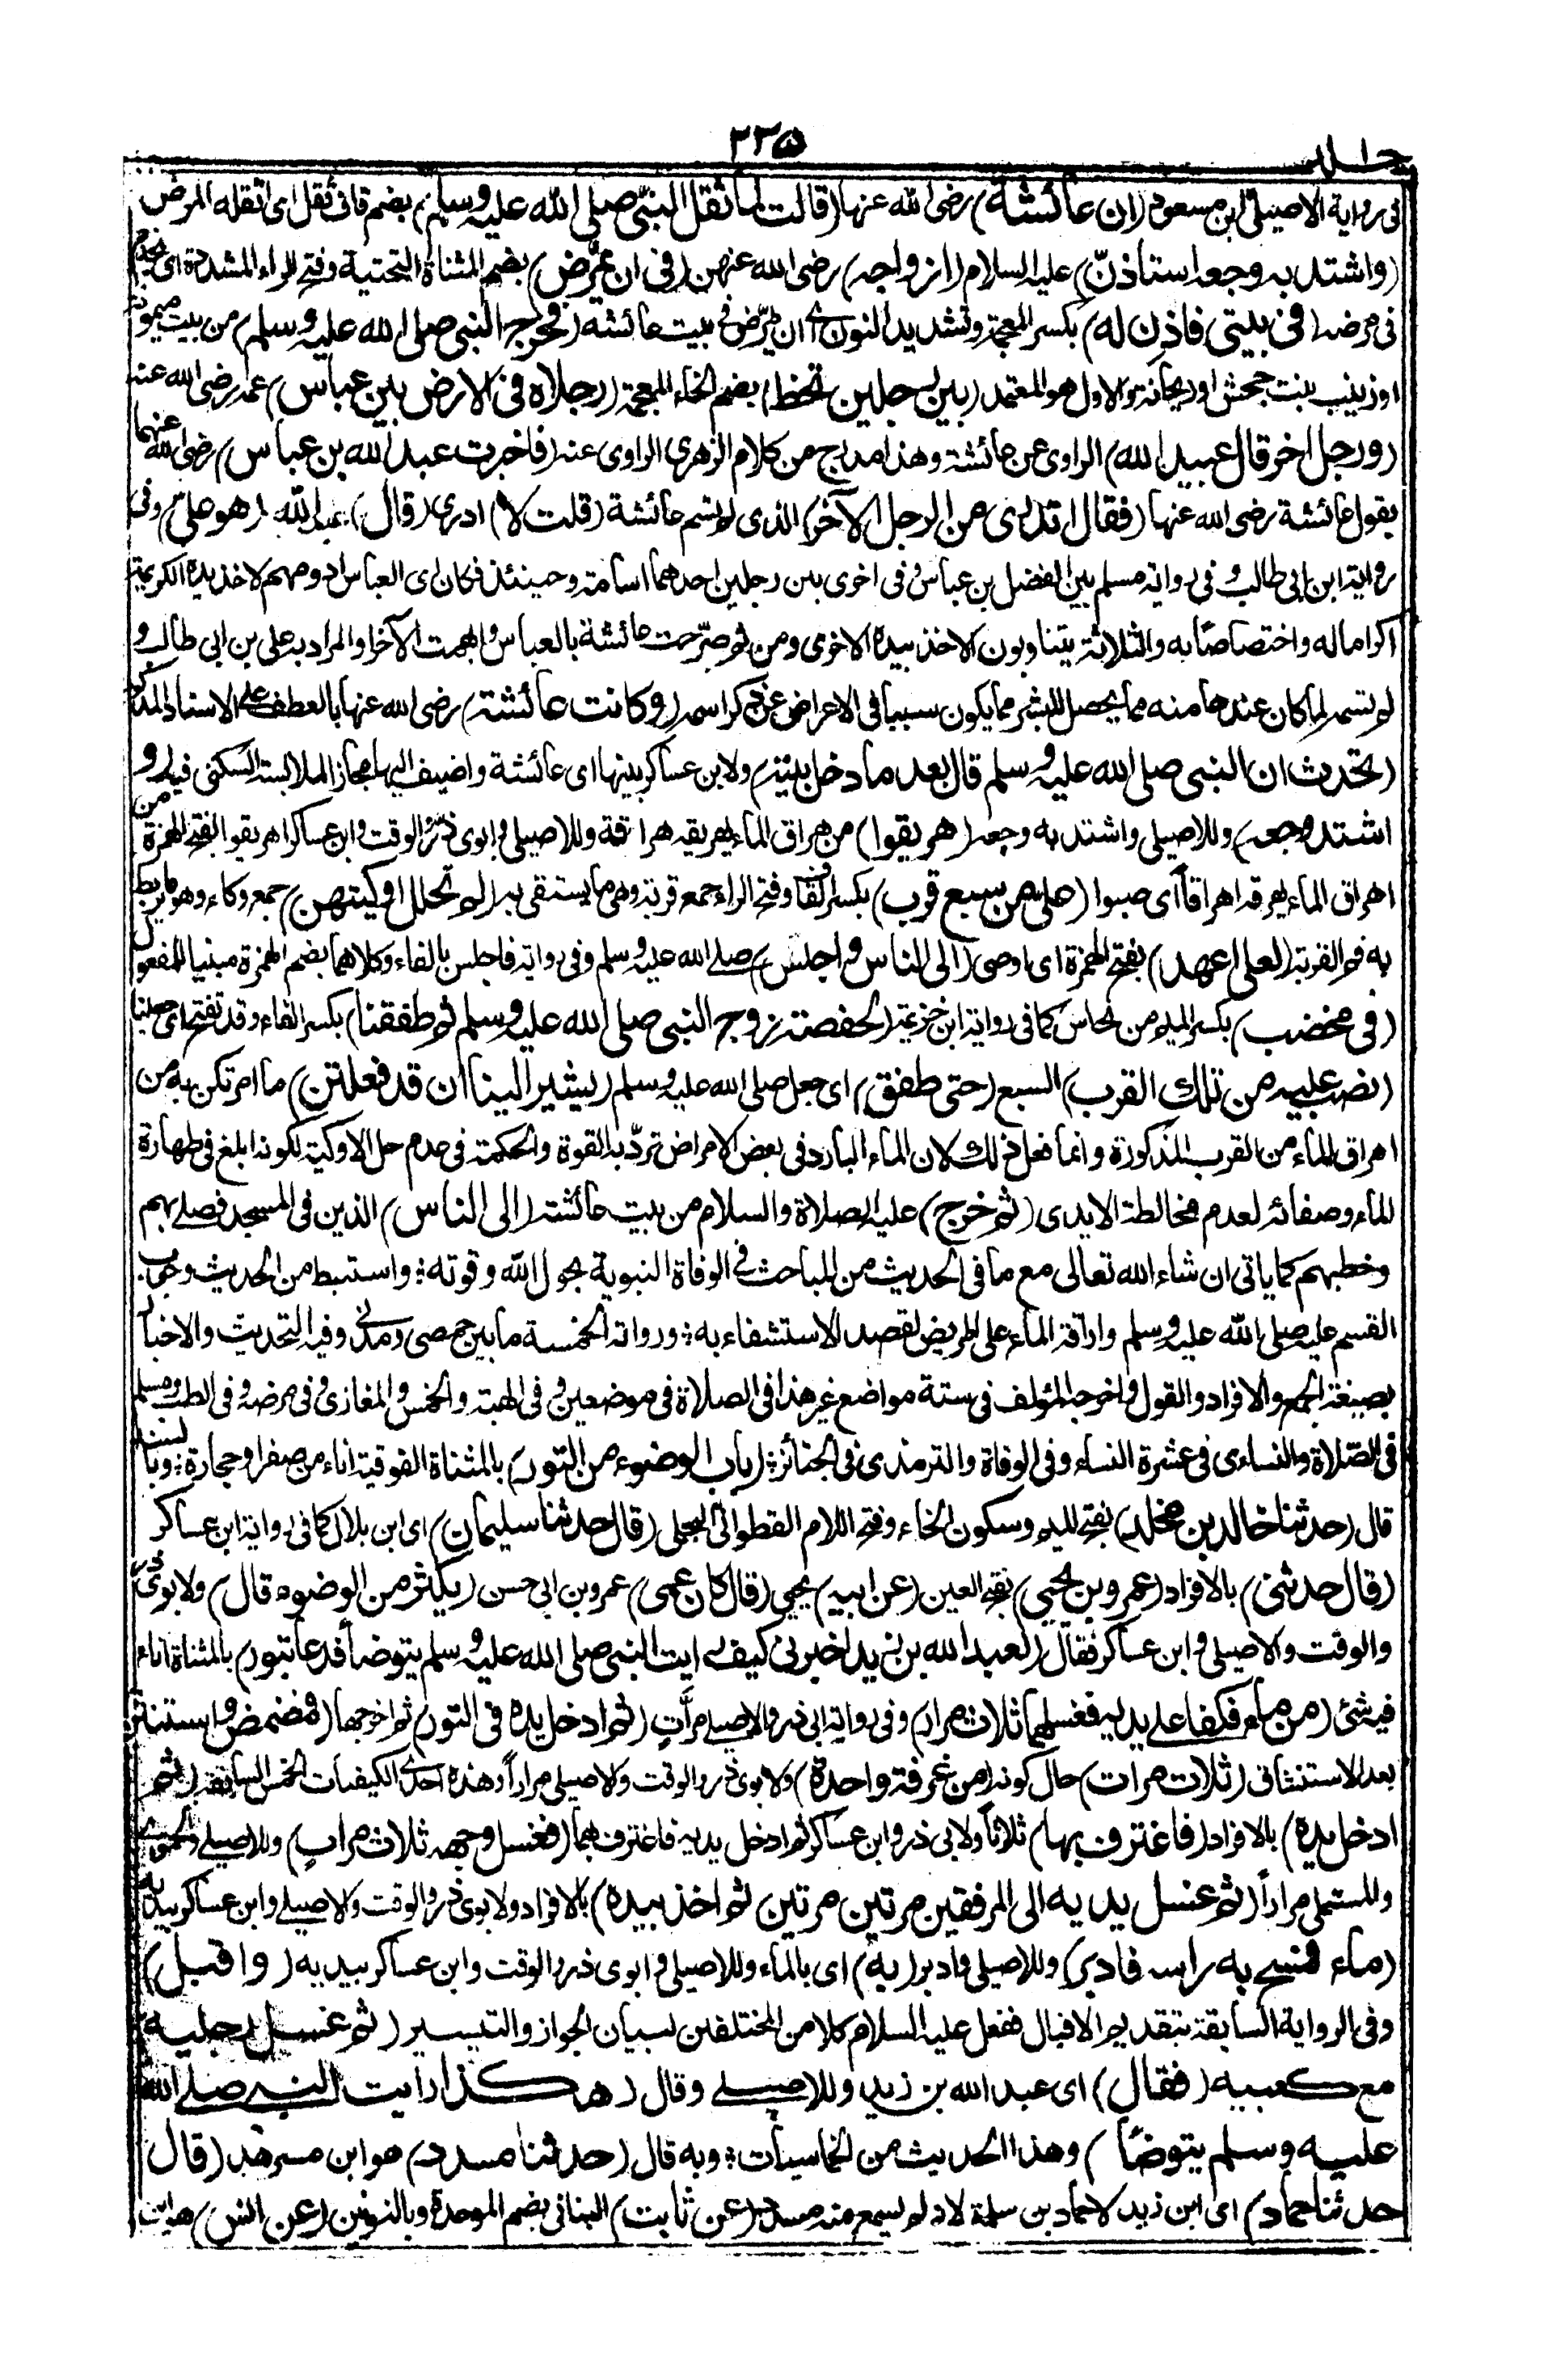 ٢٣۵
جلد
فى رواية الاصيلى ابن مسعود (ان عائشة) رضى الله عنها (قالت لما ثقل النبى صلى الله عليه وسلم) بضم قاف ثقل اى اثقله المرض
(واشتد به وجعه استاذن) عليه السلام (ازواجه) رضى الله عنهن (فى ان يمرض) بضم المثناة التحتية وفتح الراء المشددة اى يخدم
فى مرضه (فى بيتى فاذن له) بكسر المعجمة وتشديد النون اى ان يمرض فى بيت عائشة (فخرج النبى صلى الله عليه وسلم) من بيت ميمونة
او زينب بنت جحش او ريحانة والاول هو المعتمد (بين رجلين تخط) بضم الخاء المعجمة (رجلاه فى الارض بين عباس) عمه رضى الله عنه
(ورجل اخر قال عبيد الله) الراوى عن عائشة وهذا مدرج من كلام الزهرى الراوى عنه (فاخبرت عبد الله بن عباس) رضى الله عنهما
بقول عائشة رضى الله عنها (فقال اتدرى من الرجل الآخر) الذى لم تسم عائشة (قلت لا) ادرى (قال) عبد الله (هو على) وفى
رواية ابن ابى طالب وفى رواية مسلم بين الفضل بن عباس وفى اخرى بين رجلين احدهما اسامة وحينئذ فكان اى العباس ادومهم لاخذ يده الكريمة
اكراما له واختصاصا به والثلاثة يتناوبون الاخذ بيده الاخرى ومن ثم صرحت عائشة بالعباس وابهمت الآخر او المراد به على بن ابى طالب و
لم تسمه لما كان عندها منه مما يحصل للبشر مما يكون سببا فى الاعراض عن ذكر اسمه (وكانت عائشة) رضى الله عنها بالعطف على الاسناد المذكور
(تحدث ان النبى صلى الله عليه وسلم قال بعد ما دخل بيته) ولابن عساكر بيتها اى عائشة واضيف اليها مجاز الملابسة السكنى فيه (و
اشتد وجعه) وللاصيلى واشتد به وجعه (هريقوا) من هراق الماء يهريقه هراقة وللاصيلى وابوى ذر والوقت وابن عساكر اهريقوا بفتح الهمزة من
اهراق الماء يهرقه اهراقا اى صبوا (على من سبع قرب) بكسر القاف وفتح الراء جمع قربة وهى ما يستقى به (لم تحلل اوكيتهن) جمع وكاء وهو ما يربط
به فم القربة (لعلى اعهد) بفتح الهمزة اى اوصى (الى الناس واجلس) صلى الله عليه وسلم وفى رواية فاجلس بالفاء وكلاهما بضم الهمزة مبنيا للمفعول
(فى مخضب) بكسر الميم من نحاس كما فى رواية ابن خزيمة (لحفصة زوج النبى صلى الله عليه وسلم ثم طفقنا) بكسر الفاء وقد تفتح اى جعلنا
(نصب عليه من تلك القرب) السبع (حتى طفق) اى جعل صلى الله عليه وسلم (يشير الينا ان قد فعلتن) ما امرتكن به من
اهراق الماء من القرب المذكورة وانما فعل ذلك لان الماء البارد فى بعض الامراض ترد به القوة والحكمة فى عدم حل الاوكية لكونه ابلغ فى طهارة
الماء وصفائه لعدم مخالطة الايدى (ثم خرج) عليه الصلاة والسلام من بيت عائشة (الى الناس) الذين فى المسجد فصلى بهم
وخطبهم كما ياتى ان شاء الله تعالى مع ما فى الحديث من المباحث فى الوفاة النبوية بحول الله وقوته واستنبط من الحديث وجوب
القسم عليه صلى الله عليه وسلم واراقة الماء على المريض لقصد الاستشفاء به ورواته الخمسة ما بين حمصى ومدنى وفيه التحديث والاخبار
بصيغة الجمع والافراد والقول واخرجه المؤلف فى ستة مواضع غير هذا فى الصلاة فى موضعين وفى الهبة والخمس والمغازى وفى مرضه وفى الطب ومسلم
فى الصلاة والنساءى فى عشرة النساء وفى الوفاة والترمذى فى الجنائز (باب الوضوء من التور) بالمثناة الفوقية اناء من صفر او حجارة وبالسند
قال (حدثنا خالد بن مخلد) بفتح الميم وسكون الخاء وفتح اللام القطوانى البجلى (قال حدثنا سليمان) اى ابن بلال كما فى رواية ابن عساكر
(قال حدثنى) بالافراد (عمرو بن يحيى) بفتح العين (عن ابيه) يحيى (قال كان عمى) عمرو بن ابى حسن (يكثر من الوضوء قال) ولابوى ذر
والوقت والاصيلى وابن عساكر فقال (لعبد الله بن زيد اخبرنى كيف رايت النبى صلى الله عليه وسلم يتوضأ فدعا بتور) بالمثناة اناء
فيه شئ (من ماء فكفا على يديه فغسلهما ثلاث مرار) وفى رواية ابى ذر والاصيلى مرات (ثم ادخل يده فى التور) ثم اخرجها (فمضمض واستنثر)
بعد الاستنشاق (ثلاث مرات) حال كونه (من غرفة واحدة) ولابوى ذر والوقت والاصيلى مرارا وهذه احدى الكيفيات الخمس السابقة (ثم
ادخل يده) بالافراد (فاغترف بها) ثلاثا ولابى ذر وابن عساكر ثم ادخل يديه فاغترف بهما (فغسل وجهه ثلاث مرات) وللاصيلى والحموى
وللمستملى مرارا (ثم غسل يديه الى المرفقين مرتين مرتين ثم اخذ بيده) بالافراد ولابوى ذر والوقت والاصيلى وابن عساكر بيديه
(ماء فمسح به راسه فادبر) وللاصيلى وادبر (به) اى بالماء وللاصيلى وابوى ذر والوقت وابن عساكر بيديه (واقبل)
وفى الرواية السابقة بتقديم الاقبال ففعل عليه السلام كلا من المختلفين لبيان الجواز والتيسير (ثم غسل رجليه)
مع كعبيه (فقال) اى عبد الله بن زيد وللاصيلى وقال (هكذا رايت النبى صلى الله
عليه وسلم يتوضأ) وهذا الحديث من الخماسيات وبه قال (حدثنا مسدد) هو ابن مسرهد (قال
حدثنا حماد) اى ابن زيد لا حماد بن سلمة لانه لم يسمع منه مسدد (عن ثابت) البنانى بضم الموحدة وبالنونين (عن انس) هو ابن